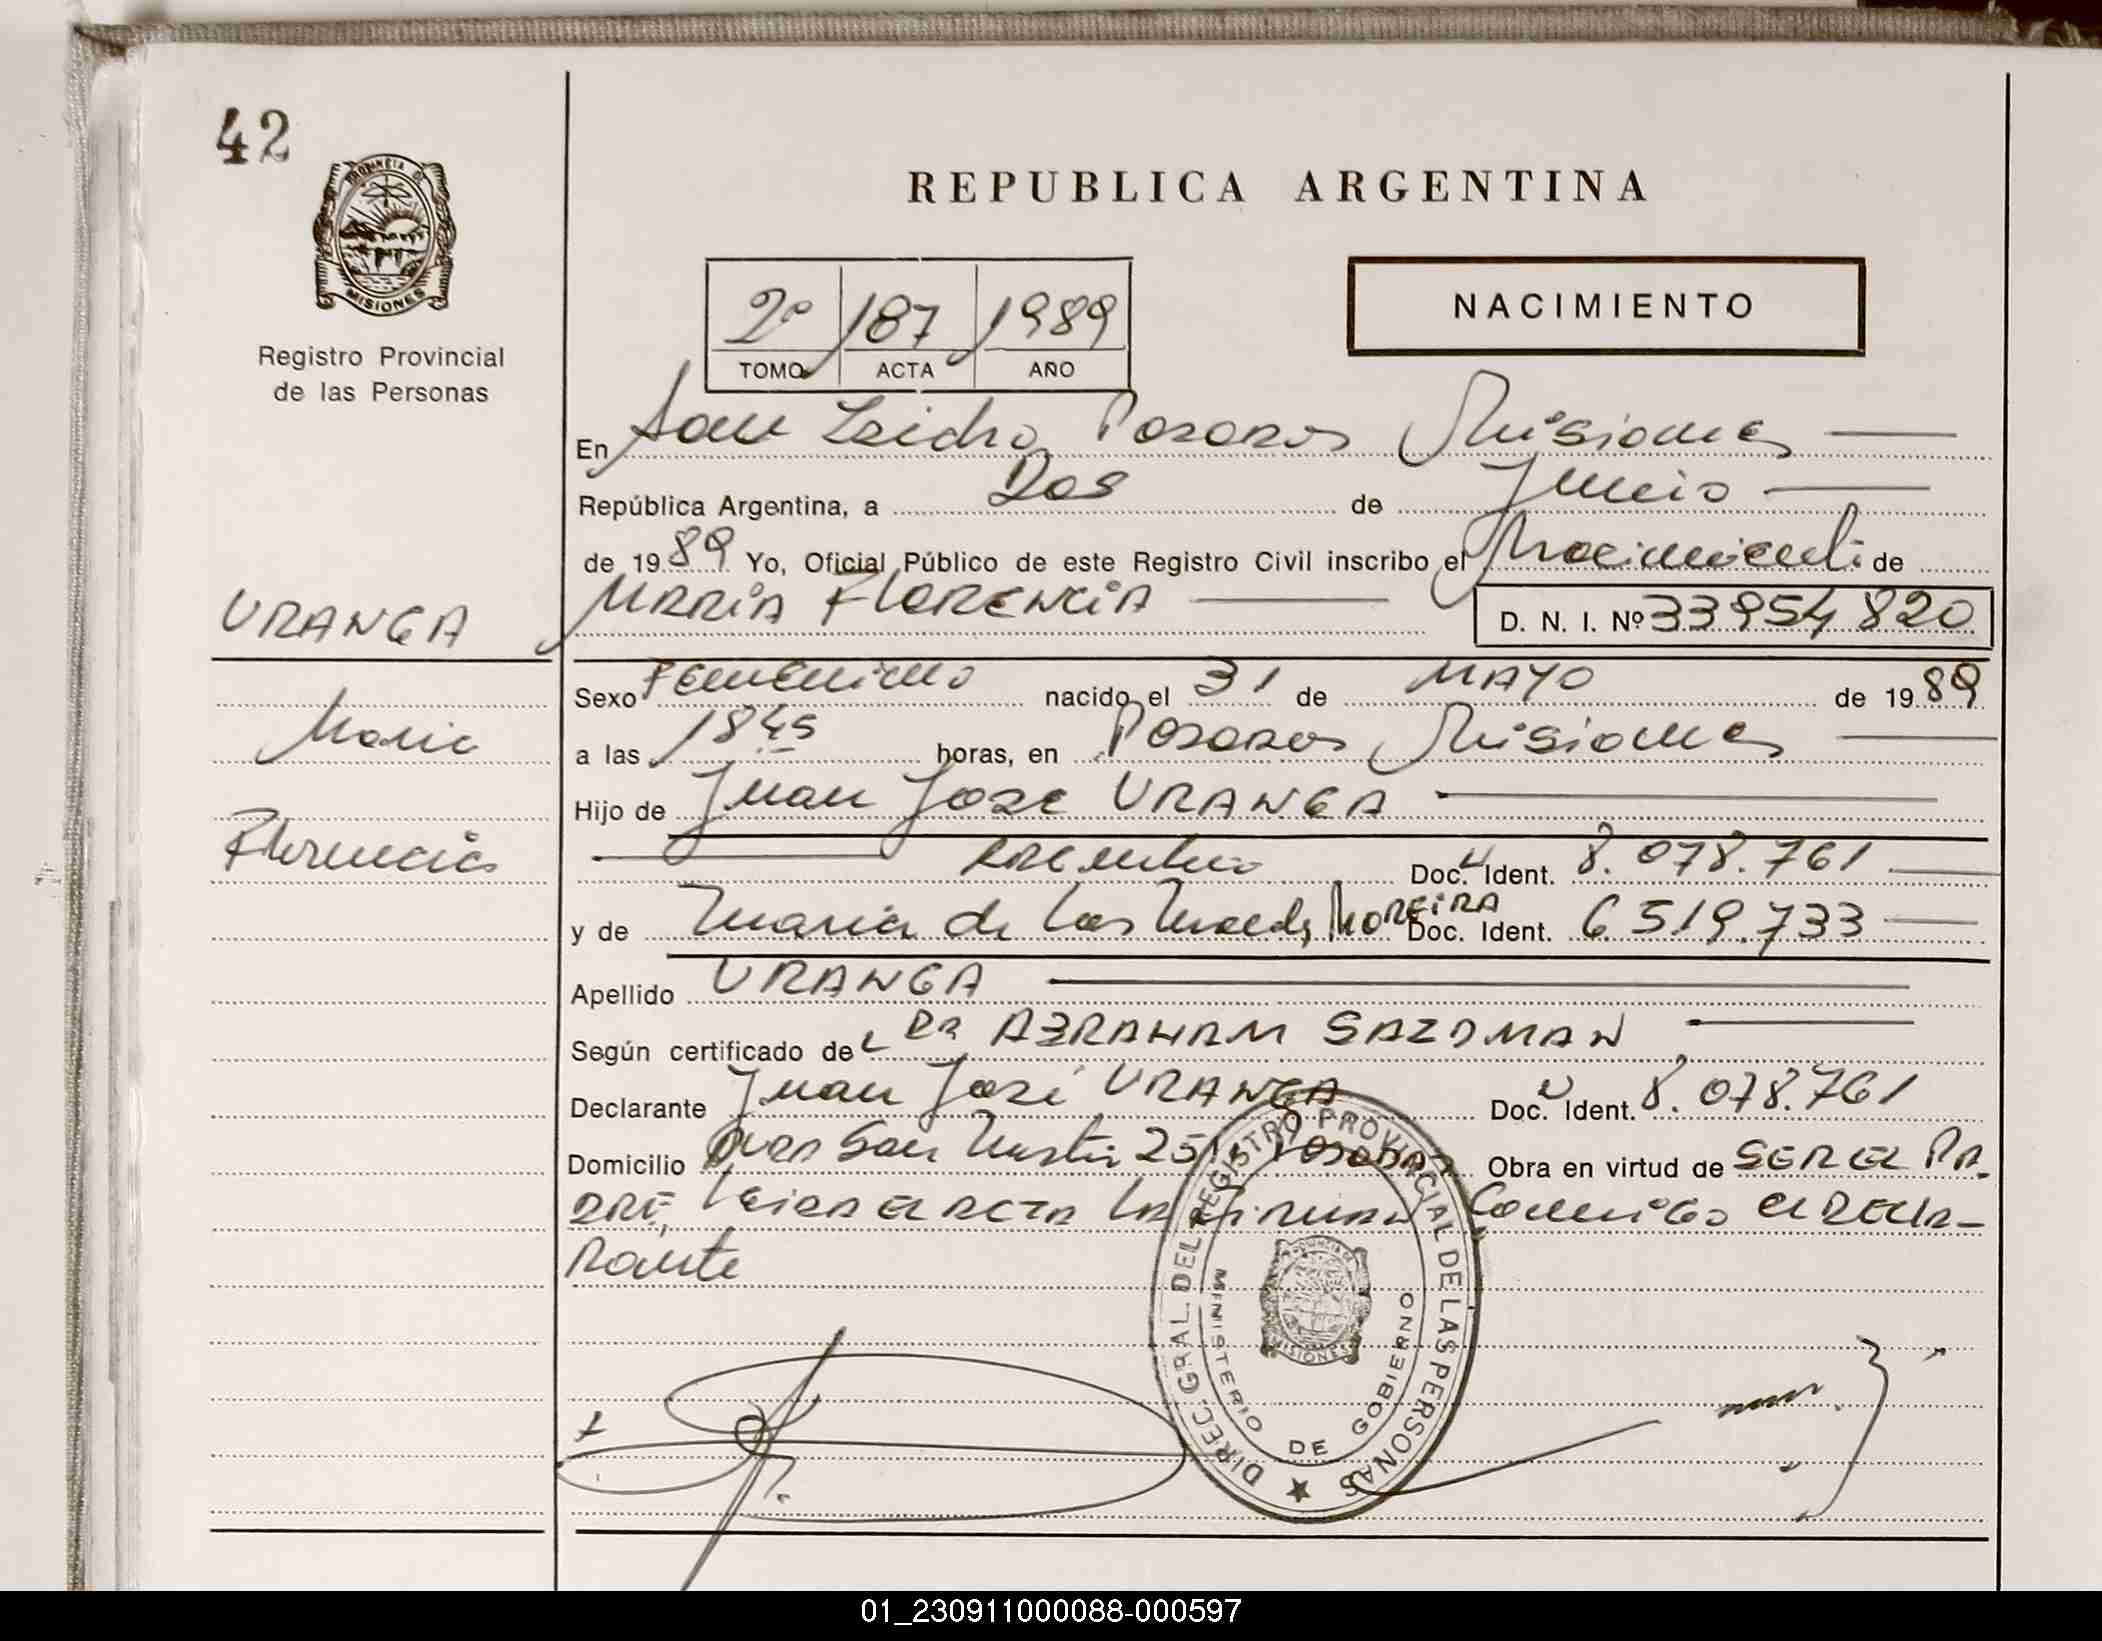 42
PROVINCIA DE
MISIONES
Registro Provincial
de las Personas
REPUBLICA ARGENTINA
2º 187 1989
TOMO ACTA AÑO
NACIMIENTO
En San Isidro Posadas Misiones
República Argentina, a Dos de Junio
de 1989 Yo, Oficial Público de este Registro Civil inscribo el Nacimiento de
URANGA
MARIA FLORENCIA
D. N. I. Nº 33954820
Sexo Femenino nacido el 31 de MAYO de 1989
Maria
a las 1845 horas, en Posadas Misiones
Hijo de Juan José URANGA
Florencia
Argentino Doc. Ident. 8.078.761
y de Maria de las MOREIRA Doc. Ident. 6.519.733
Apellido URANGA
Según certificado de DR ABRAHAM
Declarante Juan José URANGA Doc. Ident. 8.078.761
Domicilio San Posadas Obra en virtud de SER EL PA-
DRE, Leida el ACTA LA FIRMAN Conmigo el DECLA-
Rante
DIREC. GRAL DEL REGISTRO PROVINCIAL DE LAS PERSONAS
MINISTERIO DE GOBIERNO
MISIONES
01_230911000088-000597